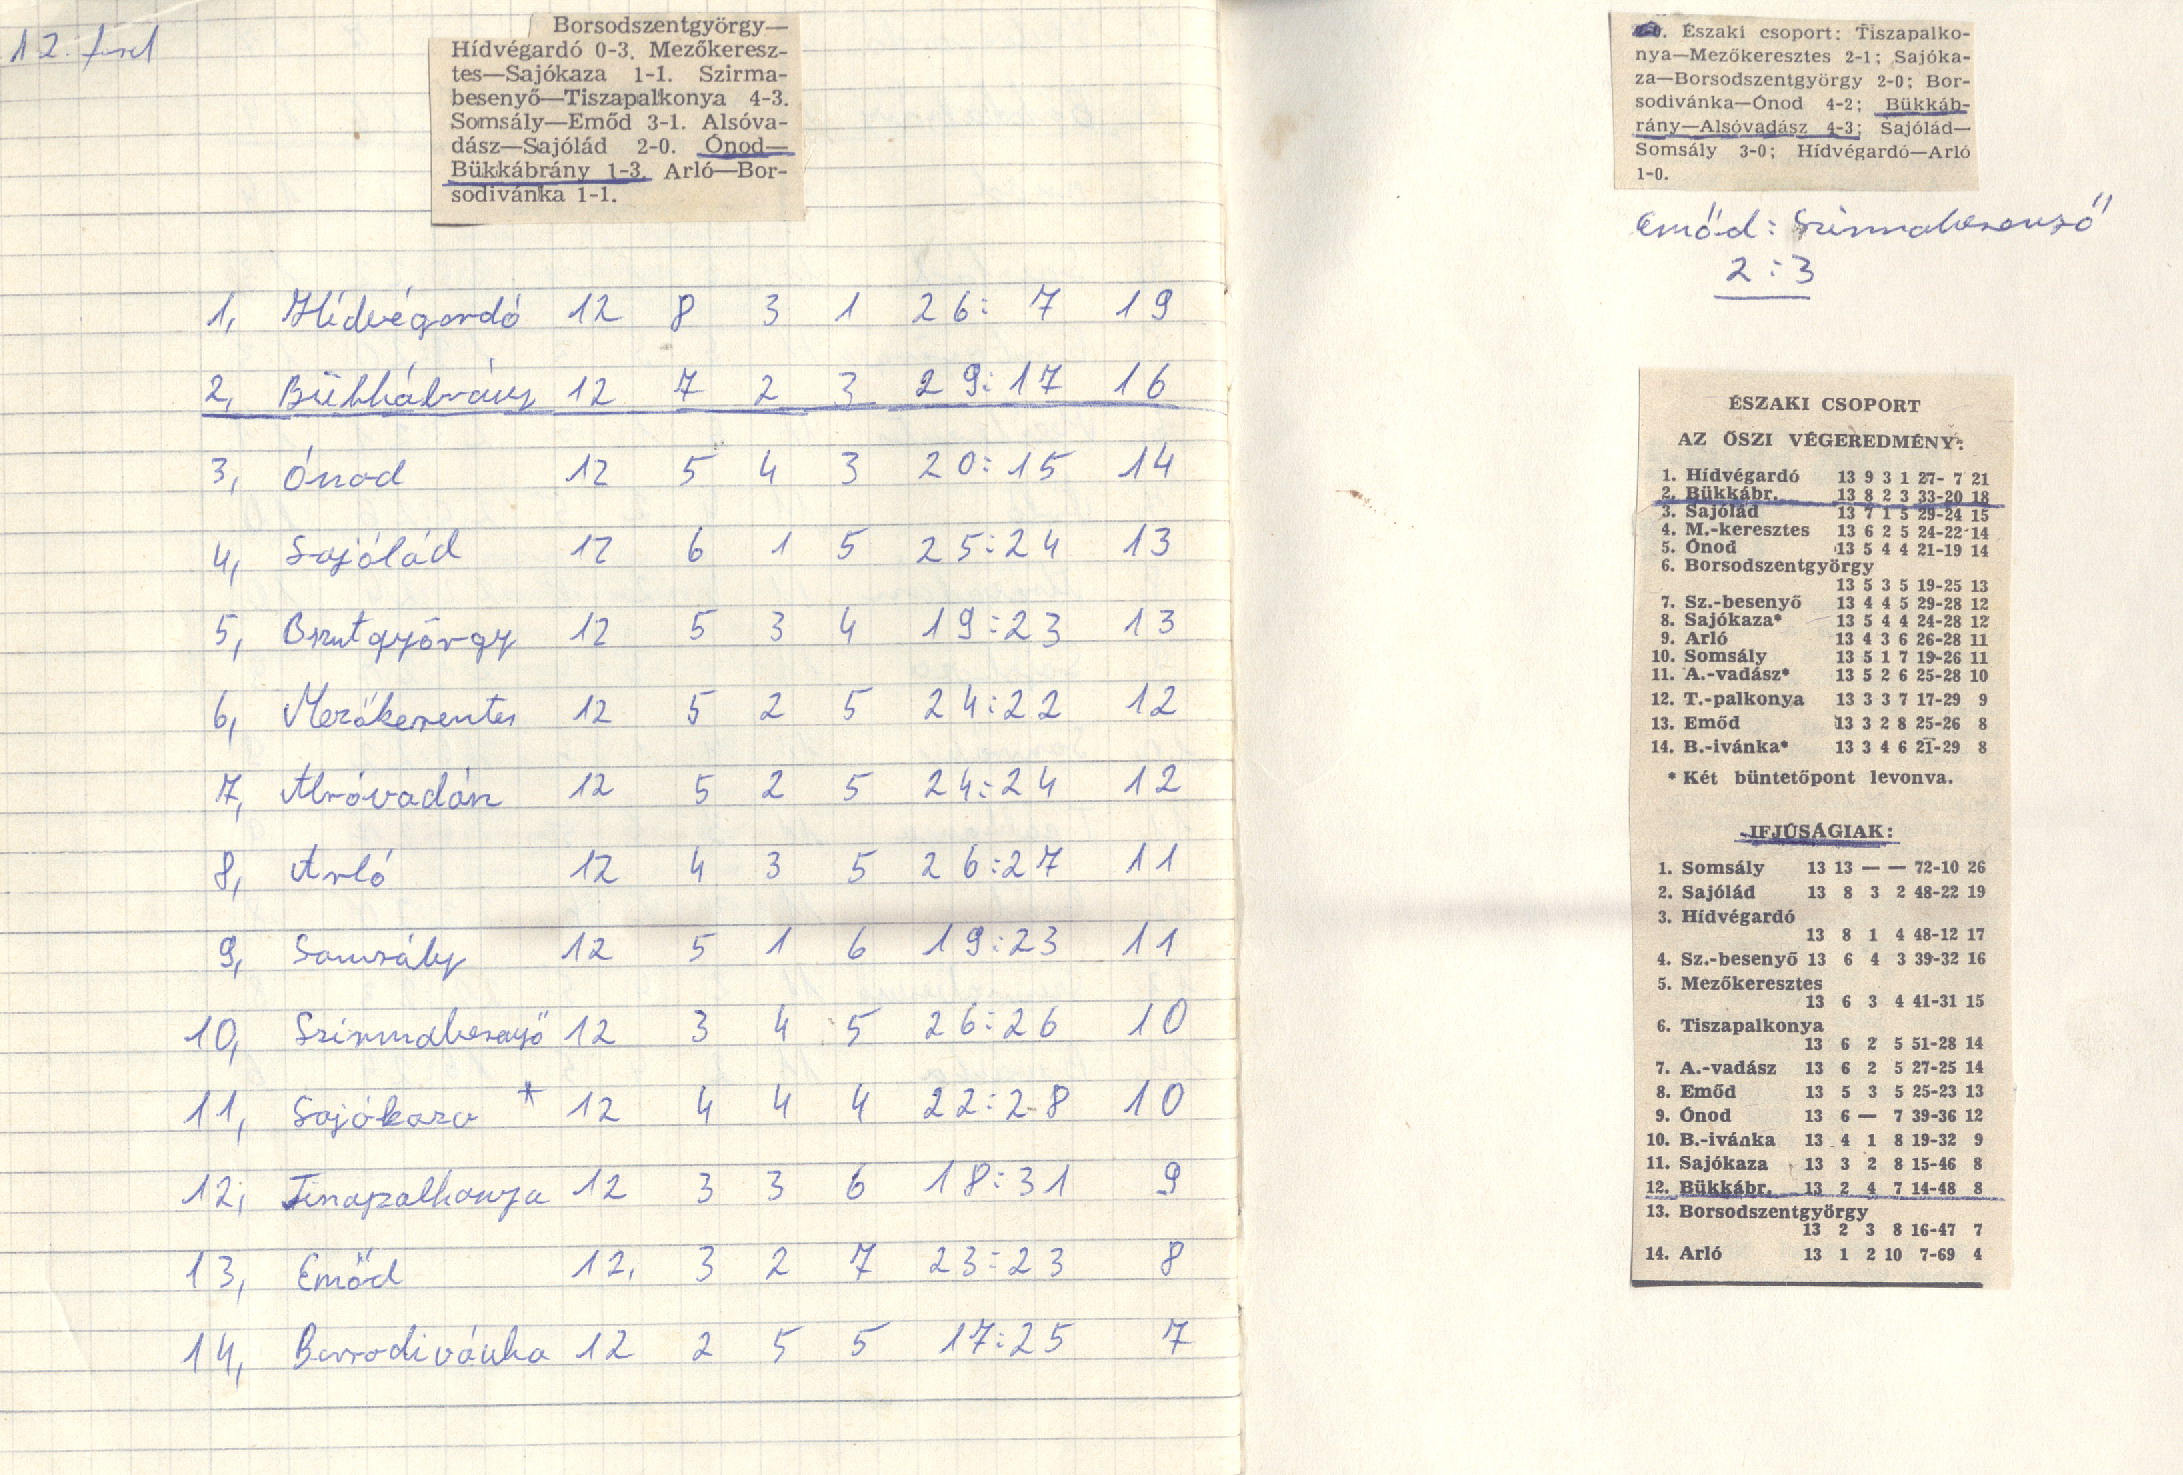 12. ford
Borsodszentgyörgy—
Hídvégardó 0-3. Mezőkeresz-
tes—Sajókaza 1-1. Szirma-
besenyő—Tiszapalkonya 4-3.
Somsály—Emőd 3-1. Alsóva-
dász—Sajólád 2-0. Ónod—
Bükkábrány 1-3. Arló—Bor-
sodivánka 1-1.
1, Hídvégardó 12 8 3 1 26: 7 19
2, Bükkábrány 12 7 2 3 29:17 16
3, Ónod 12 5 4 3 20:15 14
4, Sajólád 12 6 1 5 25:24 13
5, Bszutgyörgy 12 5 3 4 19:23 13
6, Mezőkeresztes 12 5 2 5 24:22 12
7, Alsóvadász 12 5 2 5 24:24 12
8, Arló 12 4 3 5 26:27 11
9, Somsály 12 5 1 6 19:23 11
10, Szirmabesenyő 12 3 4 5 26:26 10
11, Sajókaza * 12 4 4 4 22:28 10
12, Tiszapalkonya 12 3 3 6 18:31 9
13, Emőd 12. 3 2 7 23:23 8
14, Borsodivánka 12 2 5 5 17:25 7
Északi csoport: Tiszapalko-
nya—Mezőkeresztes 2-1; Sajóka-
za—Borsodszentgyörgy 2-0; Bor-
sodivánka—Ónod 4-2; Bükkáb-
rány—Alsóvadász 4-3; Sajólád—
Somsály 3-0; Hídvégardó—Arló
1-0.
Emőd: Szirmabesenyő
2:3
ÉSZAKI CSOPORT
AZ ŐSZI VÉGEREDMÉNY:
1. Hídvégardó 13 9 3 1 27- 7 21
2. Bükkábr. 13 8 2 3 33-20 18
3. Sajólád 13 7 1 5 29-24 15
4. M.-keresztes 13 6 2 5 24-22 14
5. Ónod 13 5 4 4 21-19 14
6. Borsodszentgyörgy
13 5 3 5 19-25 13
7. Sz.-besenyő 13 4 4 5 29-28 12
8. Sajókaza* 13 5 4 4 24-28 12
9. Arló 13 4 3 6 26-28 11
10. Somsály 13 5 1 7 19-26 11
11. A.-vadász* 13 5 2 6 25-28 10
12. T.-palkonya 13 3 3 7 17-29 9
13. Emőd 13 3 2 8 25-26 8
14. B.-ivánka* 13 3 4 6 21-29 8
* Két büntetőpont levonva.
IFJÚSÁGIAK:
1. Somsály 13 13 — — 72-10 26
2. Sajólád 13 8 3 2 48-22 19
3. Hídvégardó
13 8 1 4 48-12 17
4. Sz.-besenyő 13 6 4 3 39-32 16
5. Mezőkeresztes
13 6 3 4 41-31 15
6. Tiszapalkonya
13 6 2 5 51-28 14
7. A.-vadász 13 6 2 5 27-25 14
8. Emőd 13 5 3 5 25-23 13
9. Ónod 13 6 — 7 39-36 12
10. B.-ivánka 13 4 1 8 19-32 9
11. Sajókaza 13 3 2 8 15-46 8
12. Bükkábr. 13 2 4 7 14-48 8
13. Borsodszentgyörgy
13 2 3 8 16-47 7
14. Arló 13 1 2 10 7-69 4